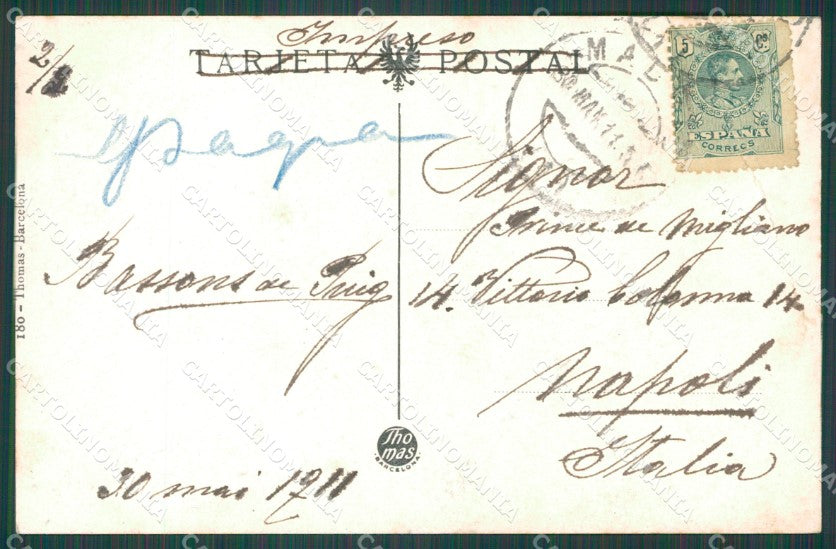 2/2
Impreso
TARJETA POSTAL
15 Cs
ESPAÑA
CORREOS
MAL
30 MAY 11
Espagna
180 - Thomas - Barcelona
Bassons de Puig
30 mai 1911
Signor
de Migliano
14. Vittorio Colonna 14
Napoli
Italia
Thomas
BARCELONA
CARTOLINOMANIA